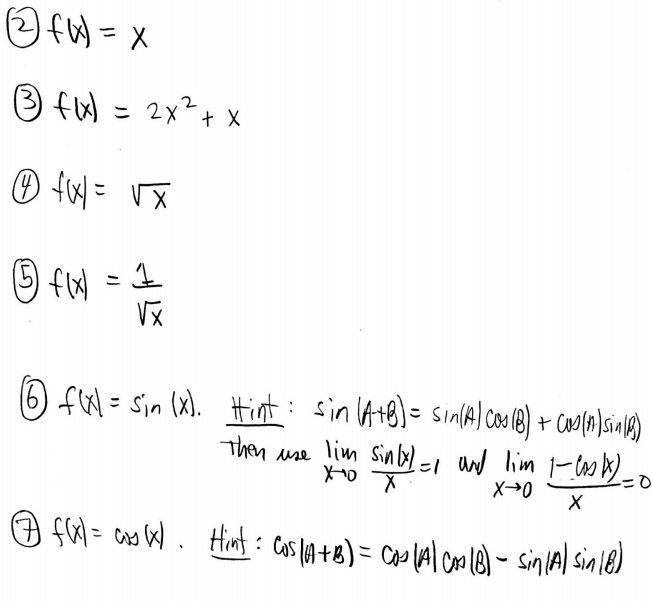 ② f(x) = x
③ f(x) = 2x² + x
④ f(x) = √x
⑤ f(x) = 1/√x
⑥ f(x) = sin(x). Hint: sin(A+B) = sin(A)cos(B) + cos(A)sin(B)
Then use lim x→0 sin(x)/x = 1 and lim x→0 1-cos(x)/x = 0
⑦ f(x) = cos(x). Hint: cos(A+B) = cos(A)cos(B) - sin(A)sin(B)